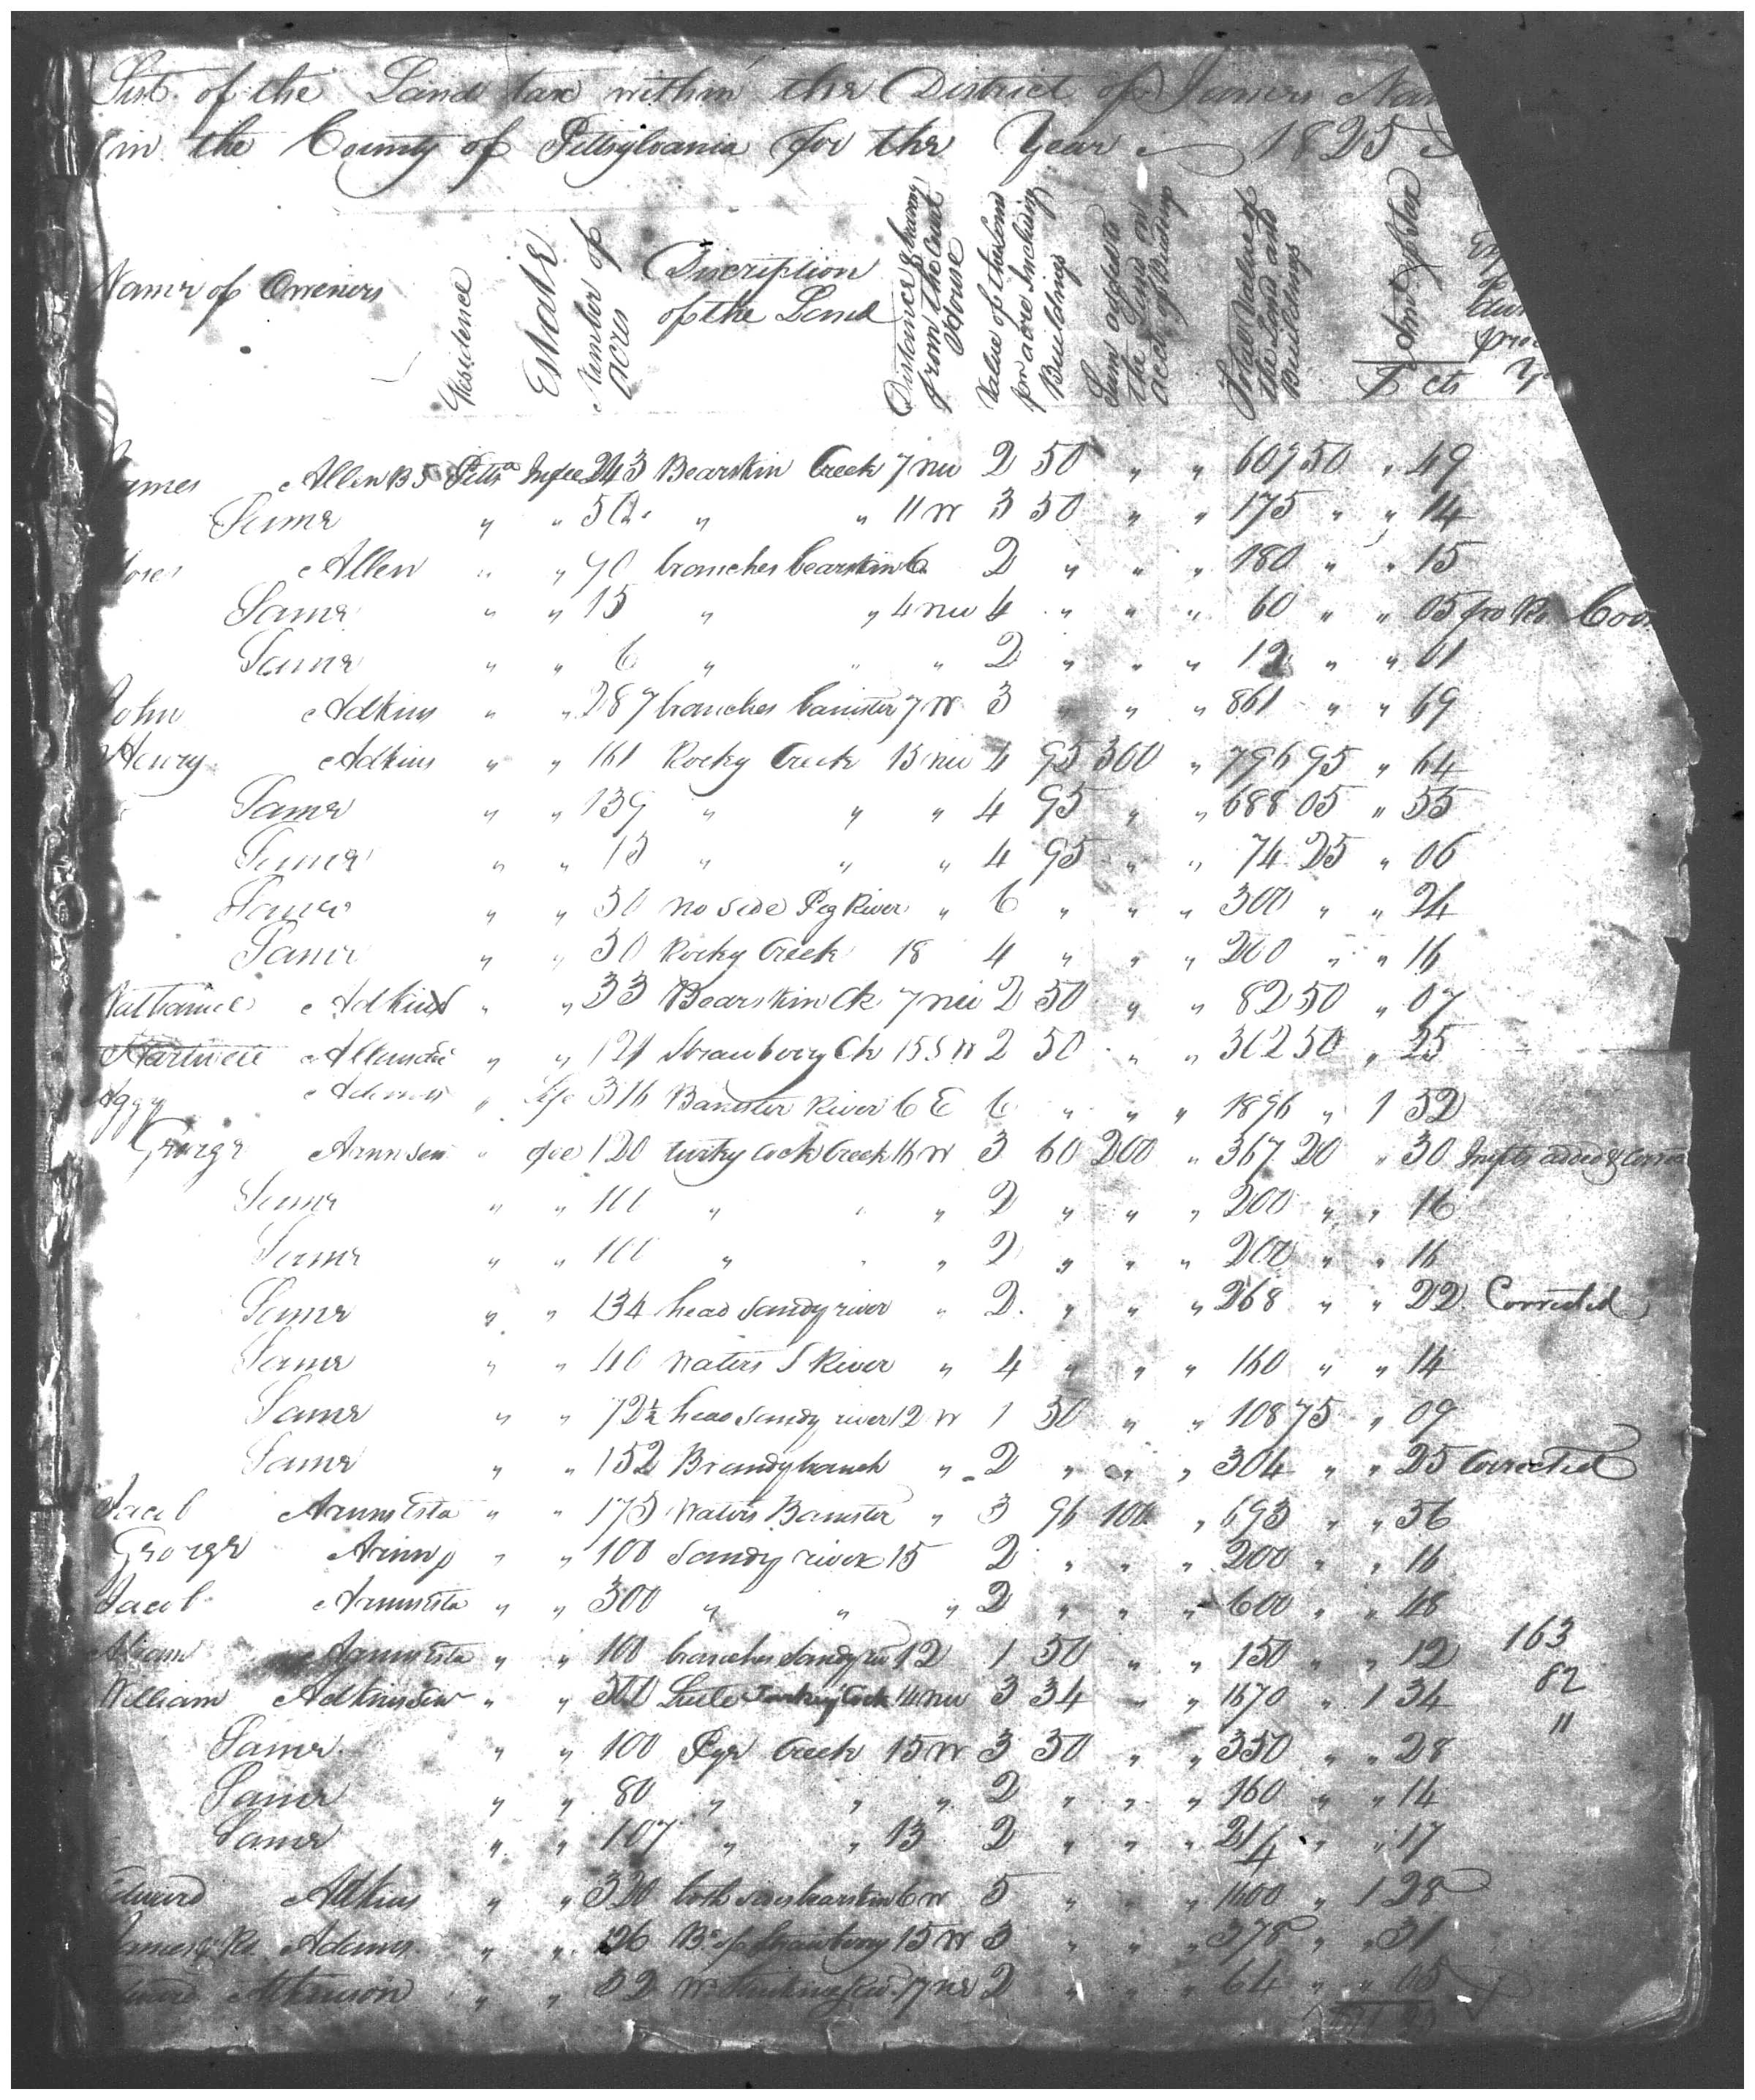 List of the Land tax within the District of James
in the County of Pittsylvania for the Year 1825
Name of Owners
Residence
Estate
Number of acres
Discription of the Land
Distance & bearing from the Court House
Value of the Land pr acre Including Buildings
Sum added to the Land on acct of Buildings
Total Value of the Land and Buildings
Amt of tax
cts
James Allen B S Pittsa Infee 243 Bearskin Creek 7 nw 2 50 " " 607 50 " 49
Same " " 50 " " 11 W 3 50 " " 175 " " 14
Allen " " 90 branches bearskin 6 2 " " " 180 " " 15
Same " " 15 " " 4 nw 4 " " " 60 " " 05
Same " " 6 " " " 2 " " " 12 " " 01
John Adkins " " 287 branches banister 7 W 3 " " " 861 " " 69
Henry Adkins " " 161 Rocky Creek 15 nw 4 95 300 " 796 95 " 64
Same " " 139 " " " 4 95 " " 688 05 " 55
Same " " 15 " " " 4 95 " " 74 25 " 06
Same " " 50 no side Pig River " 6 " " " 300 " " 24
Same " " 50 Rocky Creek 18 4 " " " 200 " " 16
Nathaniel Adkins " " 33 Bearskin Ck 7 nw 2 50 " " 82 50 " 07
" " 121 Strawberry Ck 15 S W 2 50 " " 302 50 " 25
Aggy Adams " life 316 Banister River 6 E 6 " " " 1896 " 1 52
George " fee 120 turky Cock Creek 16 W 3 60 200 " 367 20 " 30
Same " " 100 " " " 2 " " " 200 " " 16
Same " " 100 " " " 2 " " " 200 " " 16
Same " " 134 head Sandy river " 2 " " " 268 " " 22 Corrected
Same " " 40 Waters S River " 4 " " " 160 " " 14
Same " " 72½ head Sandy river 12 W 1 50 " " 108 75 " 09
Same " " 152 Brandy branch " 2 " " " 304 " " 25 Corrected
Jacob " " 175 Waters Banister " 3 96 100 " 693 " " 56
George Arnnp " " 100 Sandy river 15 2 " " " 200 " " 16
Jacob " " 300 " " " 2 " " " 600 " " 48
" " 100 branches Sandy riv 12 1 50 " " 150 " " 12 163
William Adkinson " " 500 Turkey Cock 14 nw 3 34 " " 1670 " 1 34 82
"
Same " " 100 Pigs Creek 15 W 3 50 " " 350 " " 28
Same " " 80 " " " 2 " " " 160 " " 14
Same " " 107 " " 13 2 " " " 214 " " 17
Edward Adkins " " 320 both sides bearskin 6 W 5 " " " 1600 " 1 28
Adams " " 126 Bs of Strawberry 15 W 3 " " " 378 " " 31
Atkinson " " 32 17 2 " " " 64 " " 05